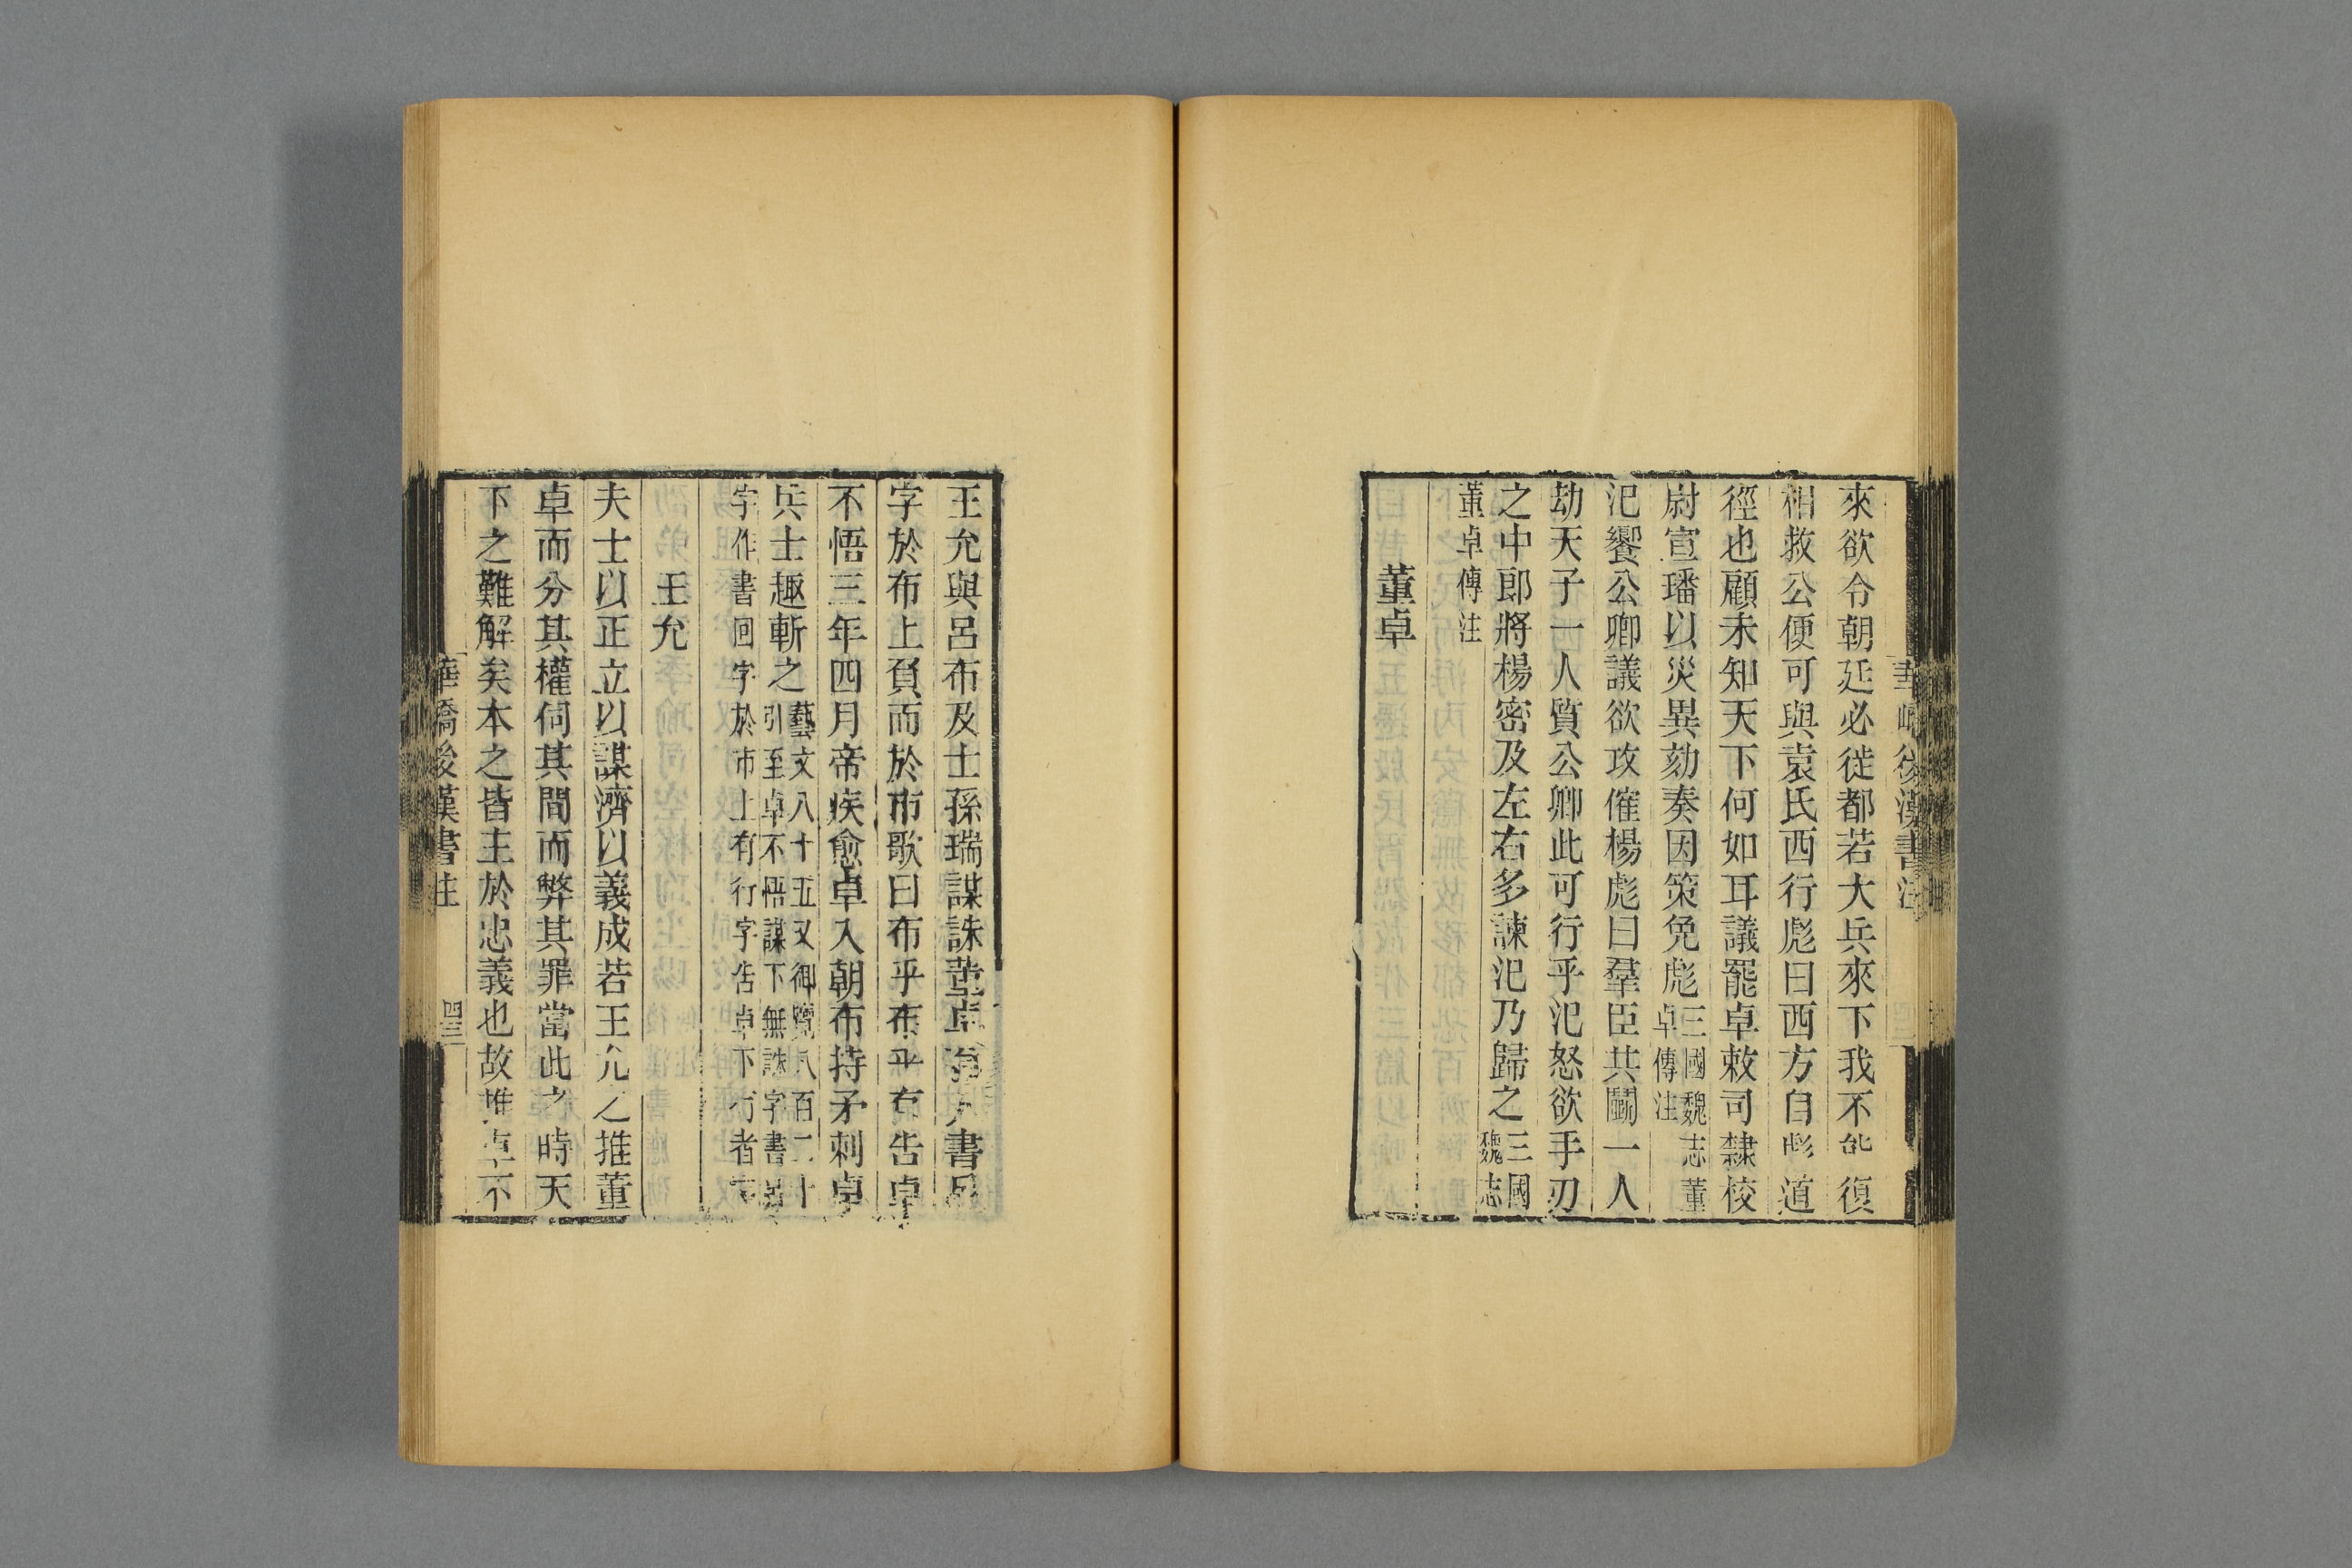 來欲令朝廷必徙都若大兵來下我不能復
相救公便可與袁氏西行彪曰西方自彪道
徑也顧未知天下何如耳議罷卓敕司隸校
尉宣璠以災異劾奏因策免彪三國魏志董卓傳注
汜饗公卿議欲攻傕楊彪曰羣臣共鬭一人
劫天子一人質公卿此可行乎汜怒欲手刃
之中郎將楊密及左右多諫汜乃歸之三國魏志
董卓傳注
董卓
王允與呂布及士孫瑞謀誅董卓有人書呂
字於布上負而於市歌曰布乎布乎有告卓
不悟三年四月帝疾愈卓入朝布持矛刺卓
兵士趣斬之藝文八十五又御覽八百二十引至卓不悟謀下無誅字書呂
字作書回字於市上有行字告卓下有者字
王允
夫士以正立以謀濟以義成若王允之推董
卓而分其權伺其間而弊其罪當此之時天
下之難解矣本之皆主於忠義也故推卓不
華嶠後漢書注